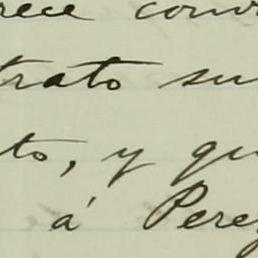 rece conv
trato su
to, y qu
á Perez